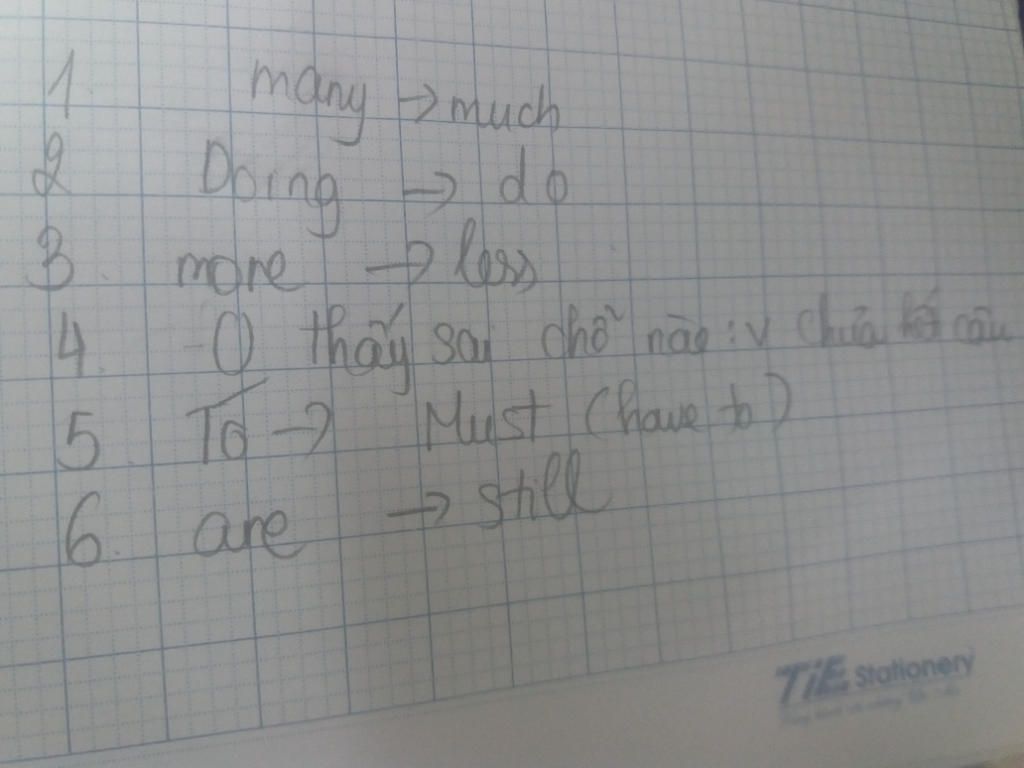 1 many → much
2 Doing → do
3. more → less
4. O thấy sai chỗ nào :v Chưa hết câu
5. To → Must (have to)
6. are → still
TiE Stationery